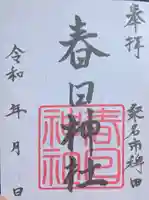 奉拝
桑名市
春日神社
春日
神社
令和 年 月 日